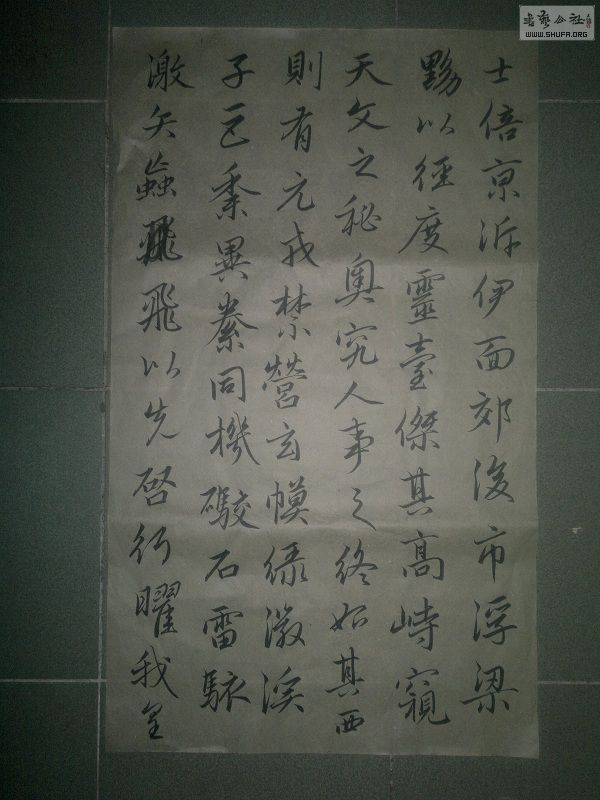 士倍京泝伊面郊後市浮梁
黝以徑度靈臺傑其高峙窺
天文之秘奧究人事之終始其西
則有元戎禁營玄幙綠徽溪
子巨黍異絭同機礮石雷駭
激矢蝱飛飛以先啓行曜我皇
書藝公社
WWW.SHUFA.ORG